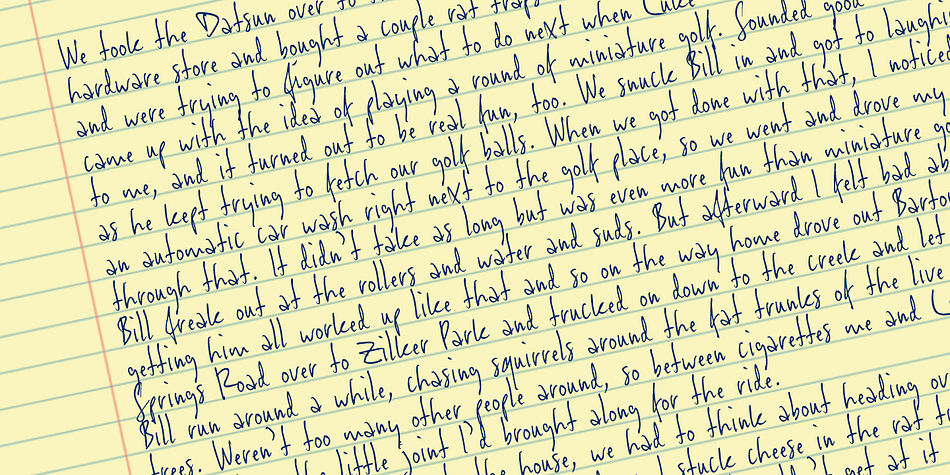 We took the Datsun over to
hardware store and bought a couple rat traps
and were trying to figure out what to do next when Luke
came up with the idea of playing a round of miniature golf. Sounded good
to me, and it turned out to be real fun, too. We snuck Bill in and got to laughi
as he kept trying to fetch our golf balls. When we got done with that, I noticed
an automatic car wash right next to the golf place, so we went and drove my
through that. It didn't take as long but was even more fun than miniature go
Bill freak out at the rollers and water and suds. But afterward I felt bad ab
getting him all worked up like that and so on the way home drove out Barto
Springs Road over to Zilker Park and trucked on down to the creek and let
Bill run around a while, chasing squirrels around the fat trunks of the live
trees. Weren't too many other people around, so between cigarettes me and
little joint I'd brought along for the ride.
the house, we had to think about heading ov
stuck cheese in the rat t
get at it